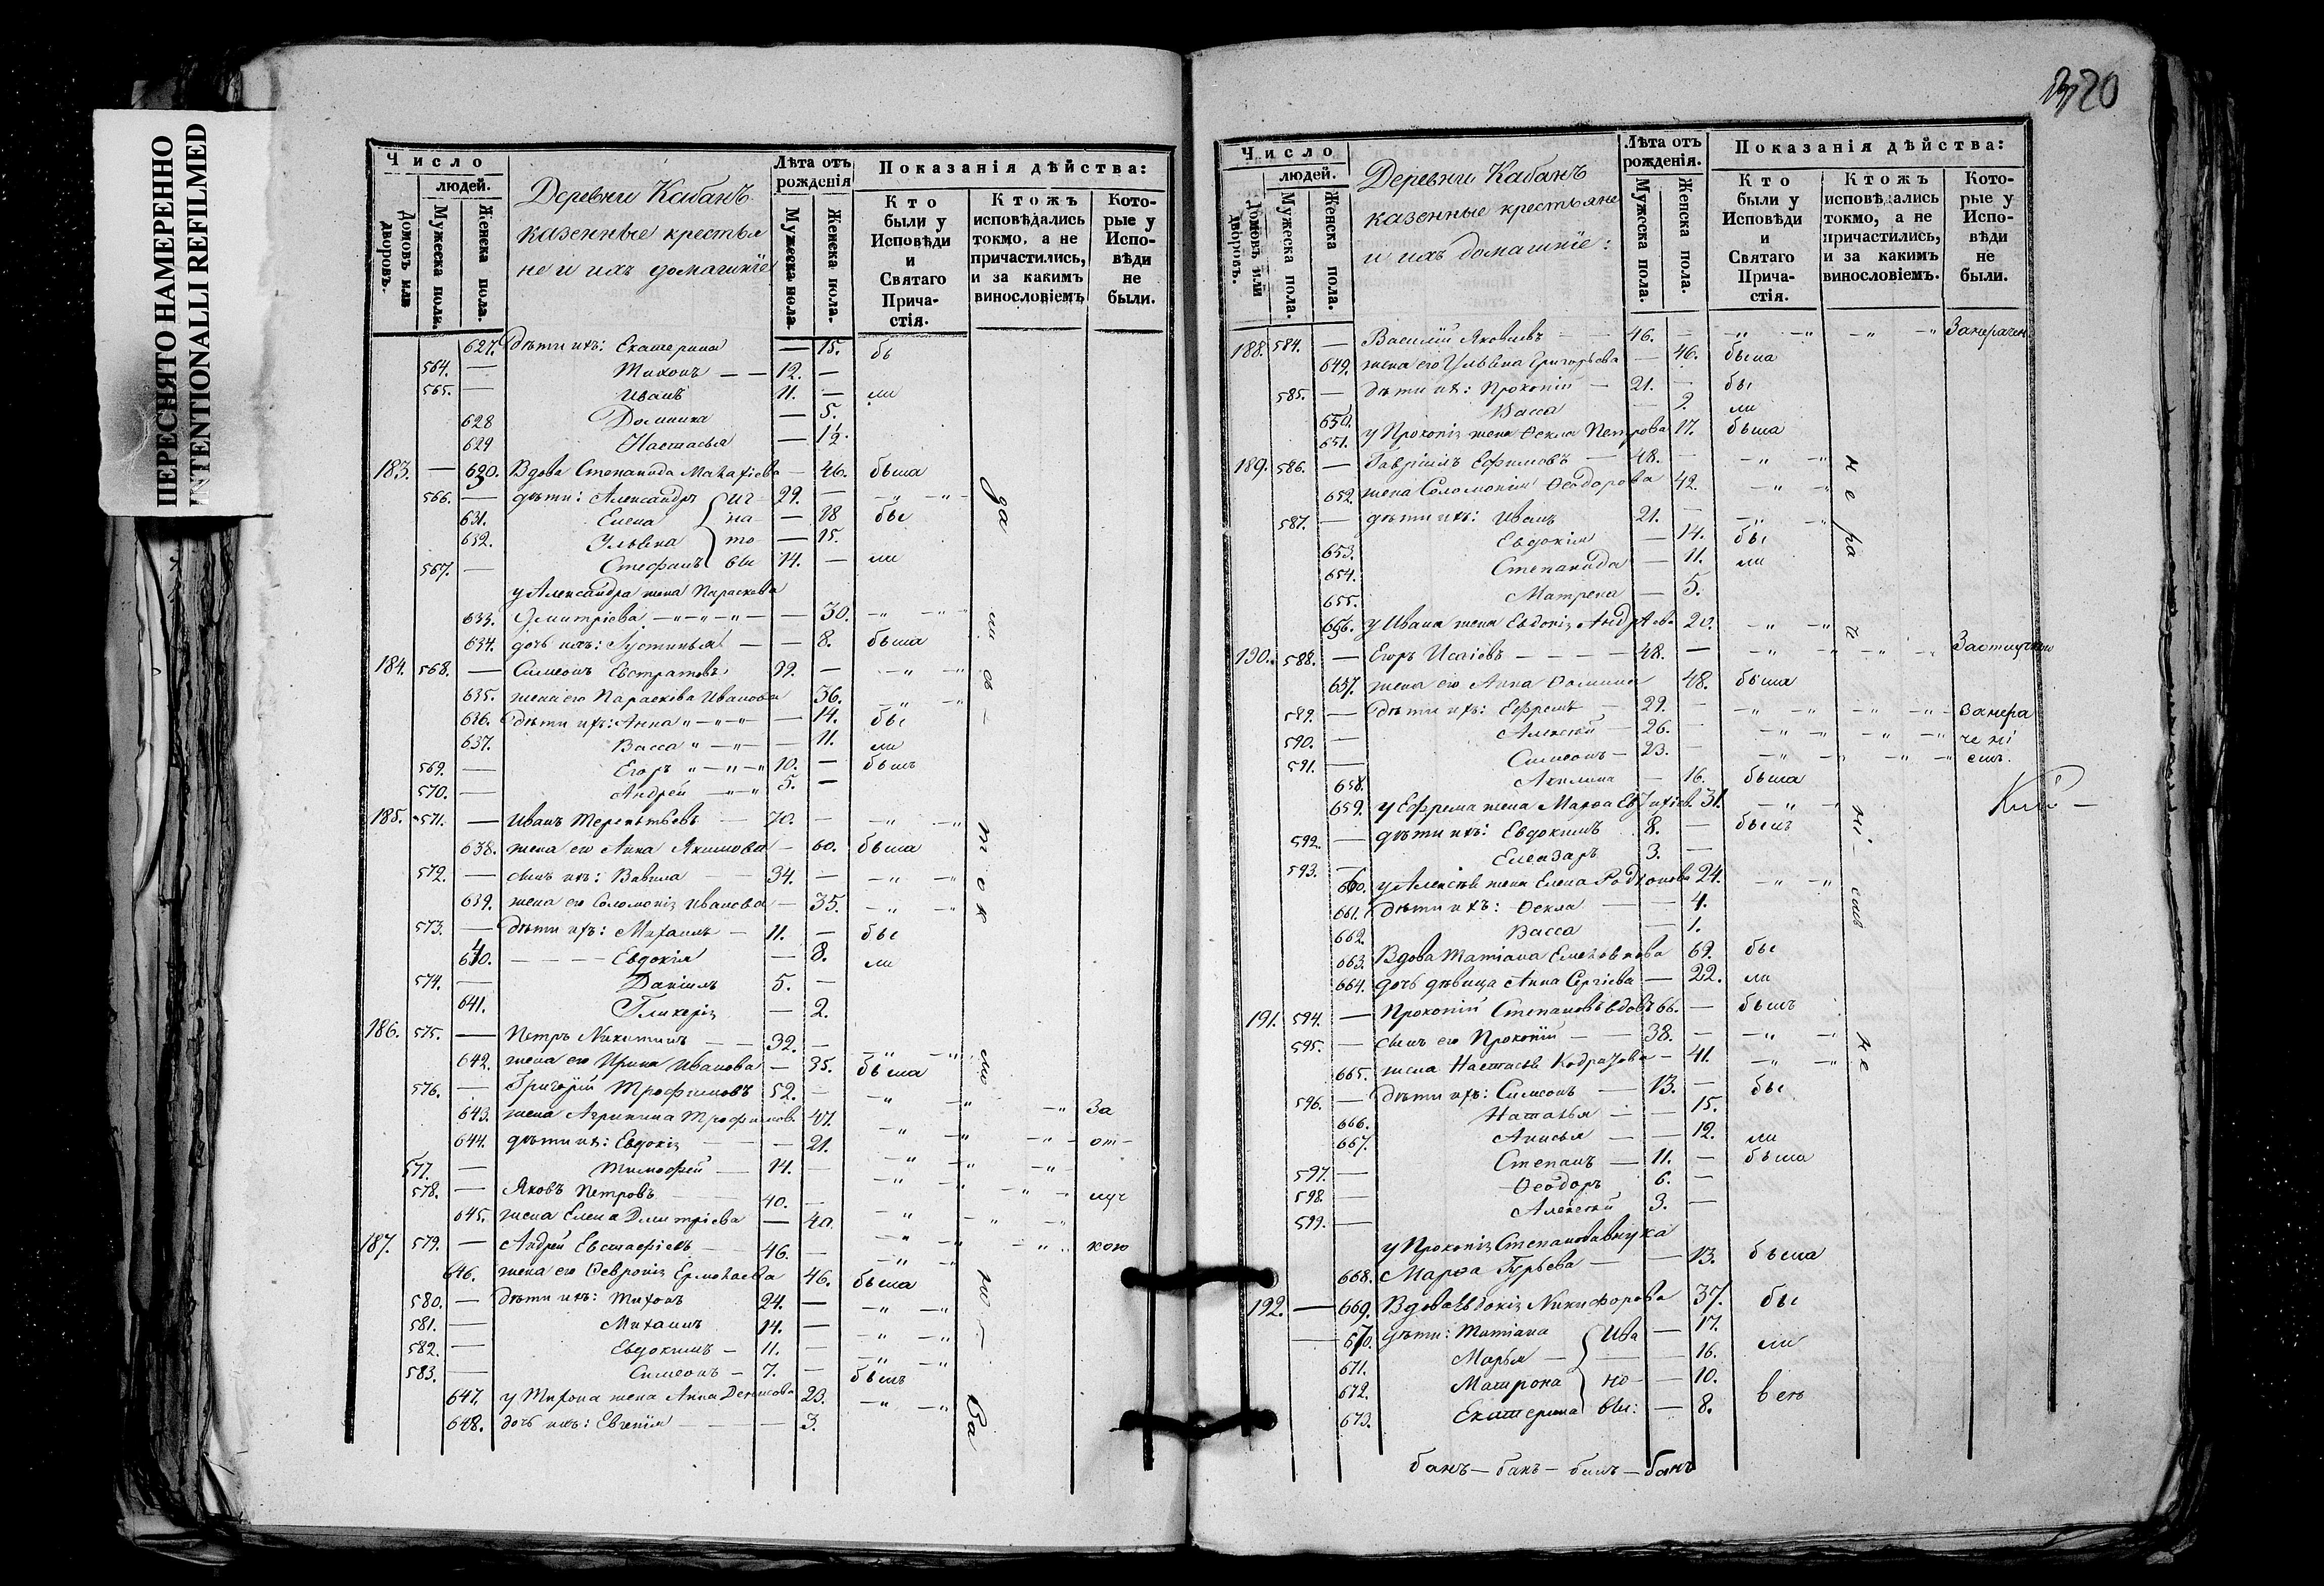 ПЕРЕСНЯТО НАМЕРЕННО
INTENTIONALLI REFILMED
Число
людей.
Домовъ или дворовъ.
Мужеска пола.
Женска пола.
Деревни Кабанъ
казенные крестья
не и ихъ домашніе
Лѣта отъ рожденія
Мужеска пола.
Женска пола.
Показанія дѣйства:
Кто были у Исповѣди и Святаго Прича-стія.
Ктожъ исповѣдались токмо, а не причастились, и за какимъ винословіемъ
Кото-рые у Испо-вѣди не были.
627. Дѣти ихъ: Екатерина — 15. бы
564. — Тихонъ — — 12. —
565. — Иванъ 11. — ли
628 Домника — 5.
629 Настасья — 1½.
183. — 630. Вдова Степанида Малахіева — 46. была
566. — дѣти: Александръ 29. —
631. Елена — 18 бы
632. Ульяна — 15.
567. — Стефанъ 14. — ли
у Александра жена Параскева
633. Димитріева — 30.
634. дочь ихъ: Іустинья — — 8. была
184. 568. — Симеонъ Евстратовъ 39. —
635. жена его Параскева Иванова 36.
636. Дѣти ихъ: Анна — 14. бы
637. Васса — 11. ли
569. — Егоръ 10. — былъ
570. — Андрей 5. —
185. 571. — Иванъ Терентьевъ — 70. —
638. жена его Анна Якимова — 60. была
572. — сынъ ихъ: Вавила — 34. —
639. жена его Соломонія Иванова — 35.
573. — Дѣти ихъ: Михаилъ — 11. — бы
640. — Евдокія — 8. ли
574. — Даніилъ 5. —
641. Гликерія — 2.
186. 575. — Петръ Никитинъ — — 32. —
642. жена его Ирина Иванова — 35. была
576. — Григорій Трофимовъ 52. —
643. жена Агрипина Трофимов. 41. За
644. дѣти их: Евдокія — 21. от—
577. — Тимофей — 14. —
578. — Яковъ Петровъ 40. — луч
645. жена Елена Дмитріева — 40.
187. 579. — Андрей Евстафіевъ 46. — кою
646. жена его Февронія Ермолаева 46. была
580. — Дѣти ихъ: Тихонъ 24. —
581. — Михаилъ 14. —
582. — Евдокимъ — 11. —
583. — Симеонъ — 7. — былъ
647. у Тихона жена Анна Денисова 23.
648. дочь ихъ: Евгенія — — 3.
20
Число
людей.
Домовъ или дворовъ.
Мужеска пола.
Женска пола.
Деревни Кабанъ
казенные крестьяне
и ихъ домашніе:
Лѣта отъ рожденія.
Мужеска пола.
Женска пола.
Показанія дѣйства:
Кто были у Исповѣди и Святаго Прича-стія.
Ктожъ исповѣдались токмо, а не причастились, и за какимъ винословіемъ.
Кото-рые у Испо-вѣди не были.
188. 584. — Василій Яковлевъ — 46. — Занерачен
649. жена его Ульяна Григорьева — 46. была
585. — дѣти их: Прокопій — 21. — бы
650. Васса 9. ли
651. у Прокопія жена Ѳекла Петрова 17. была
189. 586. — Гавріилъ Ефимовъ — 48. —
652. жена Соломонія Ѳеодорова 42.
587. — дѣти ихъ: Иванъ 21. —
653. Евдокія — 14. бы
654. Степанида — 11. ли
655. Матрена — 5.
656. у Ивана жена Евдокія Андреева 20.
190. 588. — Егоръ Исаіевъ — 48. — Заотлучкою
657. жена его Анна Ѳомина 48. была
589. — Дѣти ихъ: Ефремъ — 29. — Занера
590. — Алексѣй — 26. — чені
591. — Симеонъ — 23. — емъ.
658. Акилина — 16. была
659. у Ефрема жена Марѳа Евтихіев. 31.
592. — дѣти ихъ: Евдокимъ 8. — былъ
593. — Елеазаръ 3. —
660. у Алексѣя жена Елена Родіонова 24.
661. Дѣти ихъ: Ѳекла — 4.
662. Васса 1.
663. Вдова Татіана 69. бы
664. дочь дѣвица Анна Сергіева — 22. ли
191. 594. — Прокопій Степановъ вдовъ 66. — былъ
595. — сынъ его Прокопій — 38. —
665. жена Настасья Кодратова — 41.
596. — Дѣти ихъ: Симеонъ — 13. — бы
666. Наталья — 15.
667. Анисья — 12. ли
597. — Степанъ — 11. — была
598. — Ѳеодоръ 6. —
599. — Алексѣй 3. —
у Прокопія Степанова внука
668. Марѳа Гурьева — 13. была
192. — 669. Вдова Евдокія Никифорова 37. бы
670. дѣти: Татіана — 17.
671. Марья — 16. ли
672. Матрона — 10.
673. Екатерина — 8.
банъ — банъ — банъ — банъ